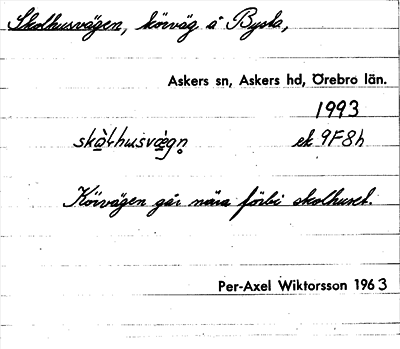 Skolhusvägen, körväg å Bysta,
Askers sn, Askers hd, Örebro län.
1993
skò̱lhusvæ̀gn̥ ek 9F8h
Körvägen går nära förbi skolhuset.
Per-Axel Wiktorsson 1963